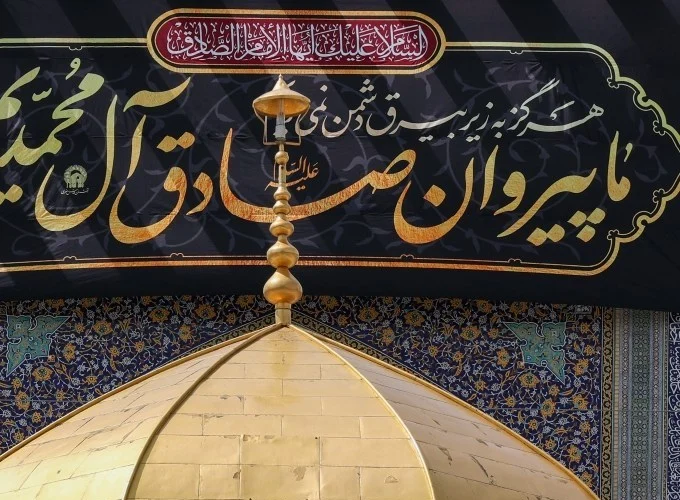 السلام علیک ایها الامام الصادق
هرگز به زیر بیرق دشمن نمی
ما پیروان صادق آل محمدی
علیه السلام